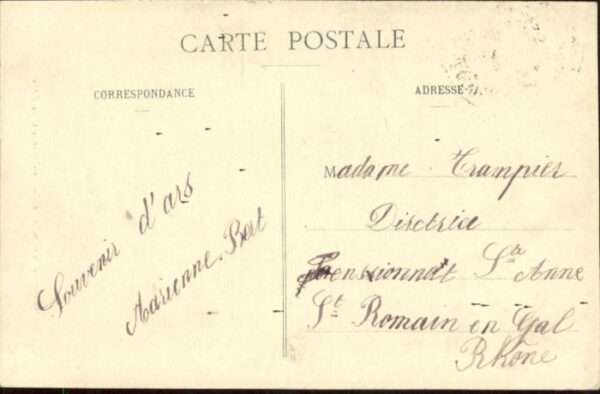 CARTE POSTALE
CORRESPONDANCE
ADRESSE
Souvenir d'ars
Adrienne Bert
Madame Trampier
Directrice
Pensionnat Ste Anne
St Romain en Gal
Rhône